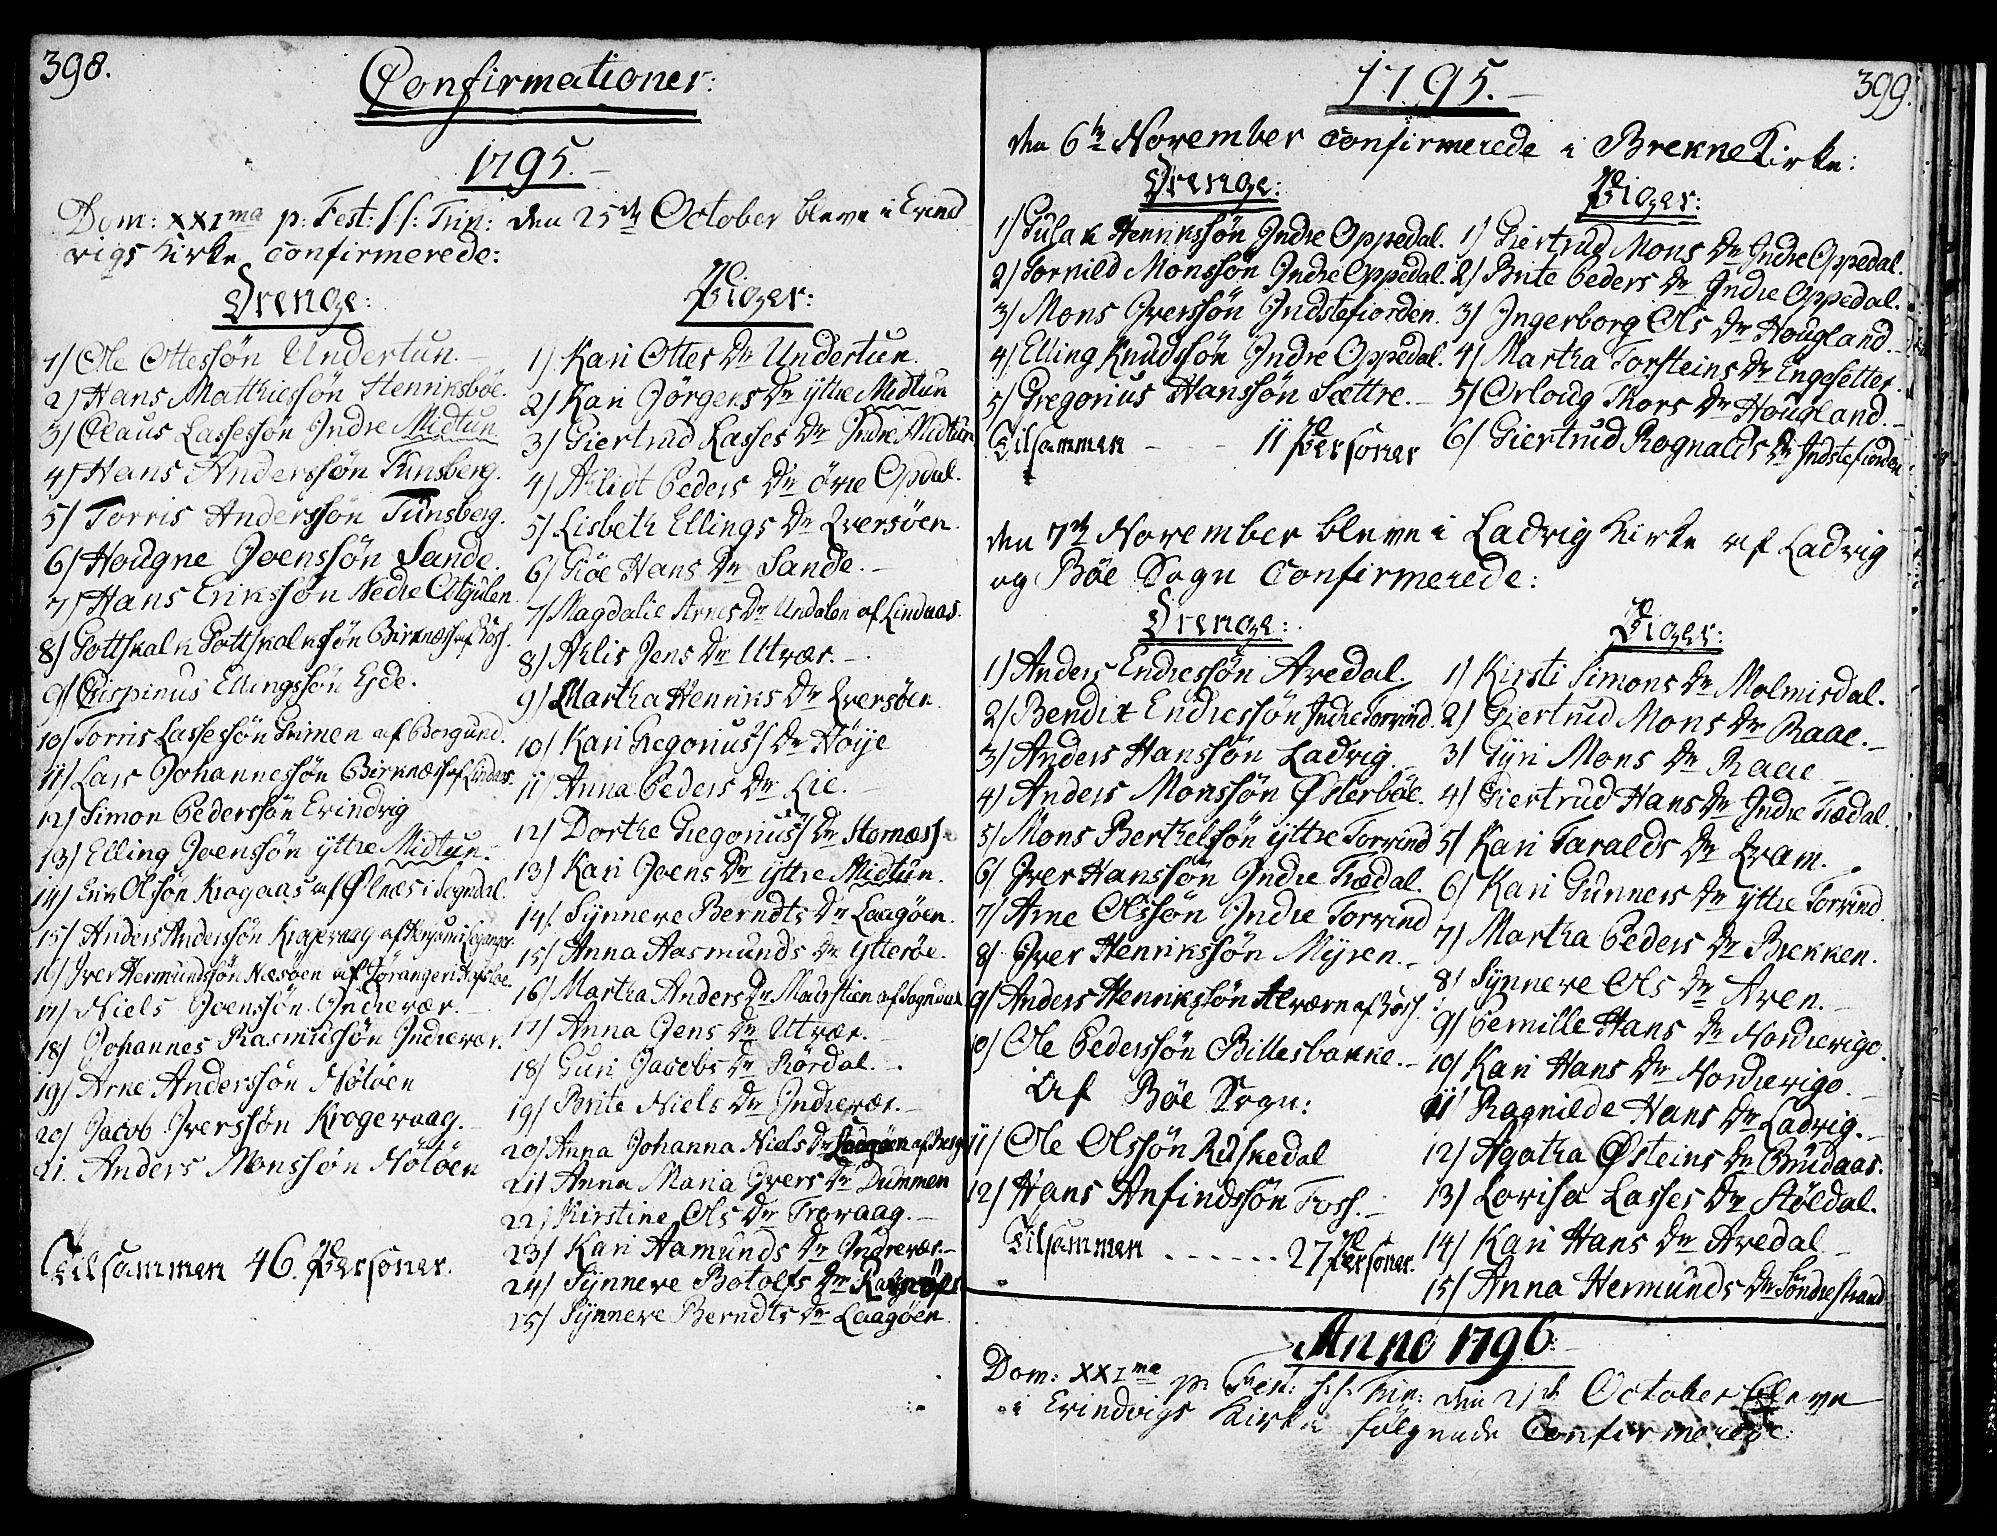 398.
Confirmationer:
1795.
Dom: XXI ma p: Fest: SS: Trin: den 25de October bleve i Evind
vigs Kirke confirmerede:
Drenge:
1) Ole Ottessøn Undertun.
2) Hans Matthiessøn Henriksbøe.
3) Claus Lassessøn Indre Midtun
4) Hans Anderssøn Tunsberg.
5) Torris Anderssøn Tunsberg.
6) Hougne Joenssøn Sande.
7) Hans Erikssøn Nedre
8) Gottskalk Gottskalkssøn Birknæs af
9) Crispinus Ellingssøn Eide.
10) Torris Lassessøn Grimen af Borgund.
11) Lars Johannessøn Birknæs af Lindaas.
12) Simon Pederssøn Evindvig
13) Elling Joenssøn yttre Midtun.
14) Erik Olssøn Kragaas af Ølnæs i Sogndal.
15) Anders Anderssøn Krogevaag af
16) Iver Hermundssøn Næsøen af
17) Niels Joenssøn Indrevær.
18) Johannes Rasmussøn Indrevær.
19) Arne Anderssøn Nötöen
20) Jacob Iverssøn Krogevaag.
21. Anders Monssøn Nötöen
Tilsammen 46. Personer.
Piger:
1) Kari Ottes Dr Undertun.
2) Kari Jörgens Dr yttre Midtun
3) Giertrud Lasses Dr Indre Midtun
4) Peders Dr övre Opdal.
5) Lisbeth Ellings Dr Qversøen.
6) Giöe Hans Dr Sande.
7) Magdalie Arnes Dr Undalen af Lindaas.
8) Jens Dr Utvær.
9) Martha Henriks Dr Qversøen.
10) Kari Gregorius's Dr Höije
11) Anna Peders Dr Lie.
12) Dorthe Gregorius's Dr Stornæs.
13) Kari Joens Dr yttre Midtun.
14. Synneve Berndts Dr Laagøen.
15) Anna Aasmunds Dr Ytterøe.
16) Martha Anders Dr af Sogndal
17) Anna Jens Dr Utvær.
18) Guri Jacobs Dr Rördal.
19) Brite Niels Dr Indrevær.
20) Anna Johanna Niels Dr Laagøen af
21) Anna Maria Ivers Dr Dummen
22) Kirstine Ols Dr Trovaag.
23) Kari Aamunds Dr Indrevær.
24) Synneve Botolfs Dr
25) Synneve Berndts Dr Laagøen.
1795.
399.
den 6te November confirmerede i Brekne Kirke:
Drenge:
1) Gulak Henrikssøn Indre Oppedal.
2) Tornild Monssøn Indre Oppedal.
3) Mons Iverssøn Indstefiorden.
4) Elling Knudssøn Indre Oppedal.
5) Gregorius Hanssøn Sættre.
Tilsammen 11 Personer
Piger:
1) Giertrud Mons Dr Indre Oppedal.
2) Brite Peders Dr Indre Oppedal.
3) Ingerborg Ols Dr Hougland.
4) Martha Torsteins Dr Engesetter.
5) Orloug Thors Dr Hougland.
6) Giertrud Rognalds Dr Indstefiorden
den 7de November bleve i Ladvig Kirke af Ladvig
og Böe Sogn Confirmerede:
Drenge:
1) Anders Endressøn Avedal.
2) Bendix Endressøn Indre Torvind.
3) Anders Hanssøn Ladvig.
4) Anders Monssøn Østerböe.
5) Mons Berthelssøn yttre Torvind
6) Iver Hanssøn Indre Trædal.
7) Arne Olssøn Indre Torvind
8) Iver Henrikssøn Myren.
9) Anders Henrikssøn af
10) Ole Pederssøn Billesbakke.
Af Böe Sogn:
11) Ole Olssøn Ruskedal
12) Hans Anfindssøn Foss.
Tilsammen 27 Personer.
Piger:
1) Kirsti Simons Dr Molmisdal.
2) Giertrud Mons Dr Raae.
3) Gyri Mons Dr Raae
4) Giertrud Hans Dr Indre Trædal.
5) Kari Taralds Dr Qvam.
6) Kari Gunners Dr yttre Torvind.
7) Martha Peders Dr Brekken.
8) Synneve Ols Dr Aven.
9) Pernille Hans Dr Nordrevigo.
10) Kari Hans Dr Nordrevigo
11) Ragnilde Hans Dr Ladvig.
12) Agatha Østeins Dr
13) Lovisa Lasses Dr Støldal.
14) Kari Hans Dr Avedal
15) Anna Hermunds Dr Söndrestrand
Anno 1796.
Dom: XXI ma p. Fest: S:S: Trin: den 21de October bleve
i Evindvigs Kirke følgende Confirmerede: